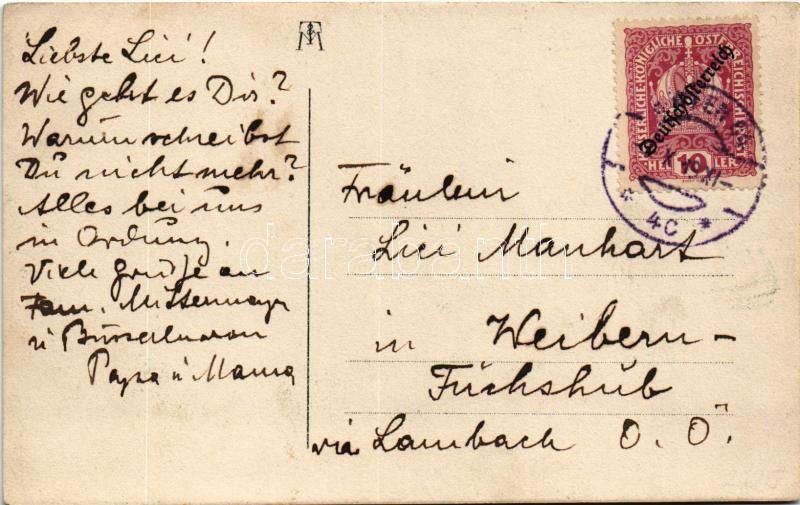 Liebste Lici!
Wie geht es Dir?
Warum schreibst
Du nicht mehr?
Alles bei uns
in Ordung.
Viele Grüße an
Fam. Mittermayr
u
Papa u Mama
KAISERLICHE KÖNIGLICHE ÖSTERREICHISCHE POST
Deutschösterreich
HELLER
10
* 4C *
Fräulein
Lici Manhart
in Weibern-
Fuchshub
via Lambach O. Ö.
darabanth